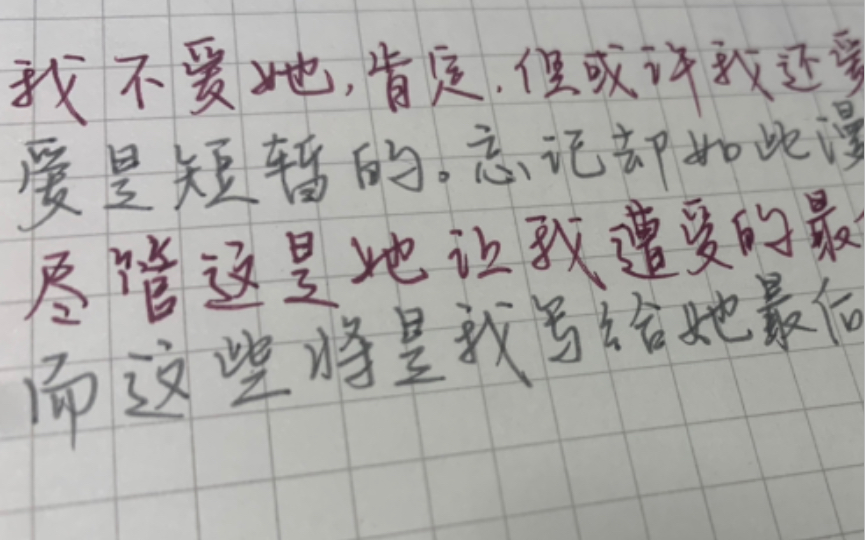 我不爱她，肯定．但或许我还爱
爱是短暂的。忘记却如此漫
尽管这是她让我遭受的最
而这些将是我写给她最后